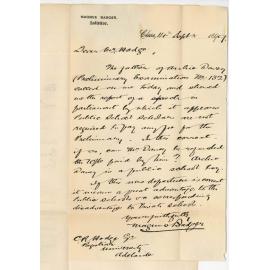 MAGNUS BADGER,
Solicitor.
Clare, 11th Sept. 1907
Dear Mr Hodge,
The father of Archie Davey
(Preliminary Examination No. 132)
called on me today and showed
me the report of a speech in
parliament by which it appears
Public School Scholars are not
required to pay any fee for the
Preliminary. Is this correct.
If so, can Mr Davey be refunded
the 10/6 paid by him? Archie
Davey is a public school boy.
If this new departure is correct
it means a great advantage to the
Public schools & a corresponding
disadvantage to Private schools.
Yours faithfully
Magnus Badger
C. R. Hodge Esq
Registrar
University
Adelaide